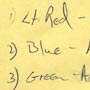 1) Lt. Red -
2) Blue - A
3) Green - A